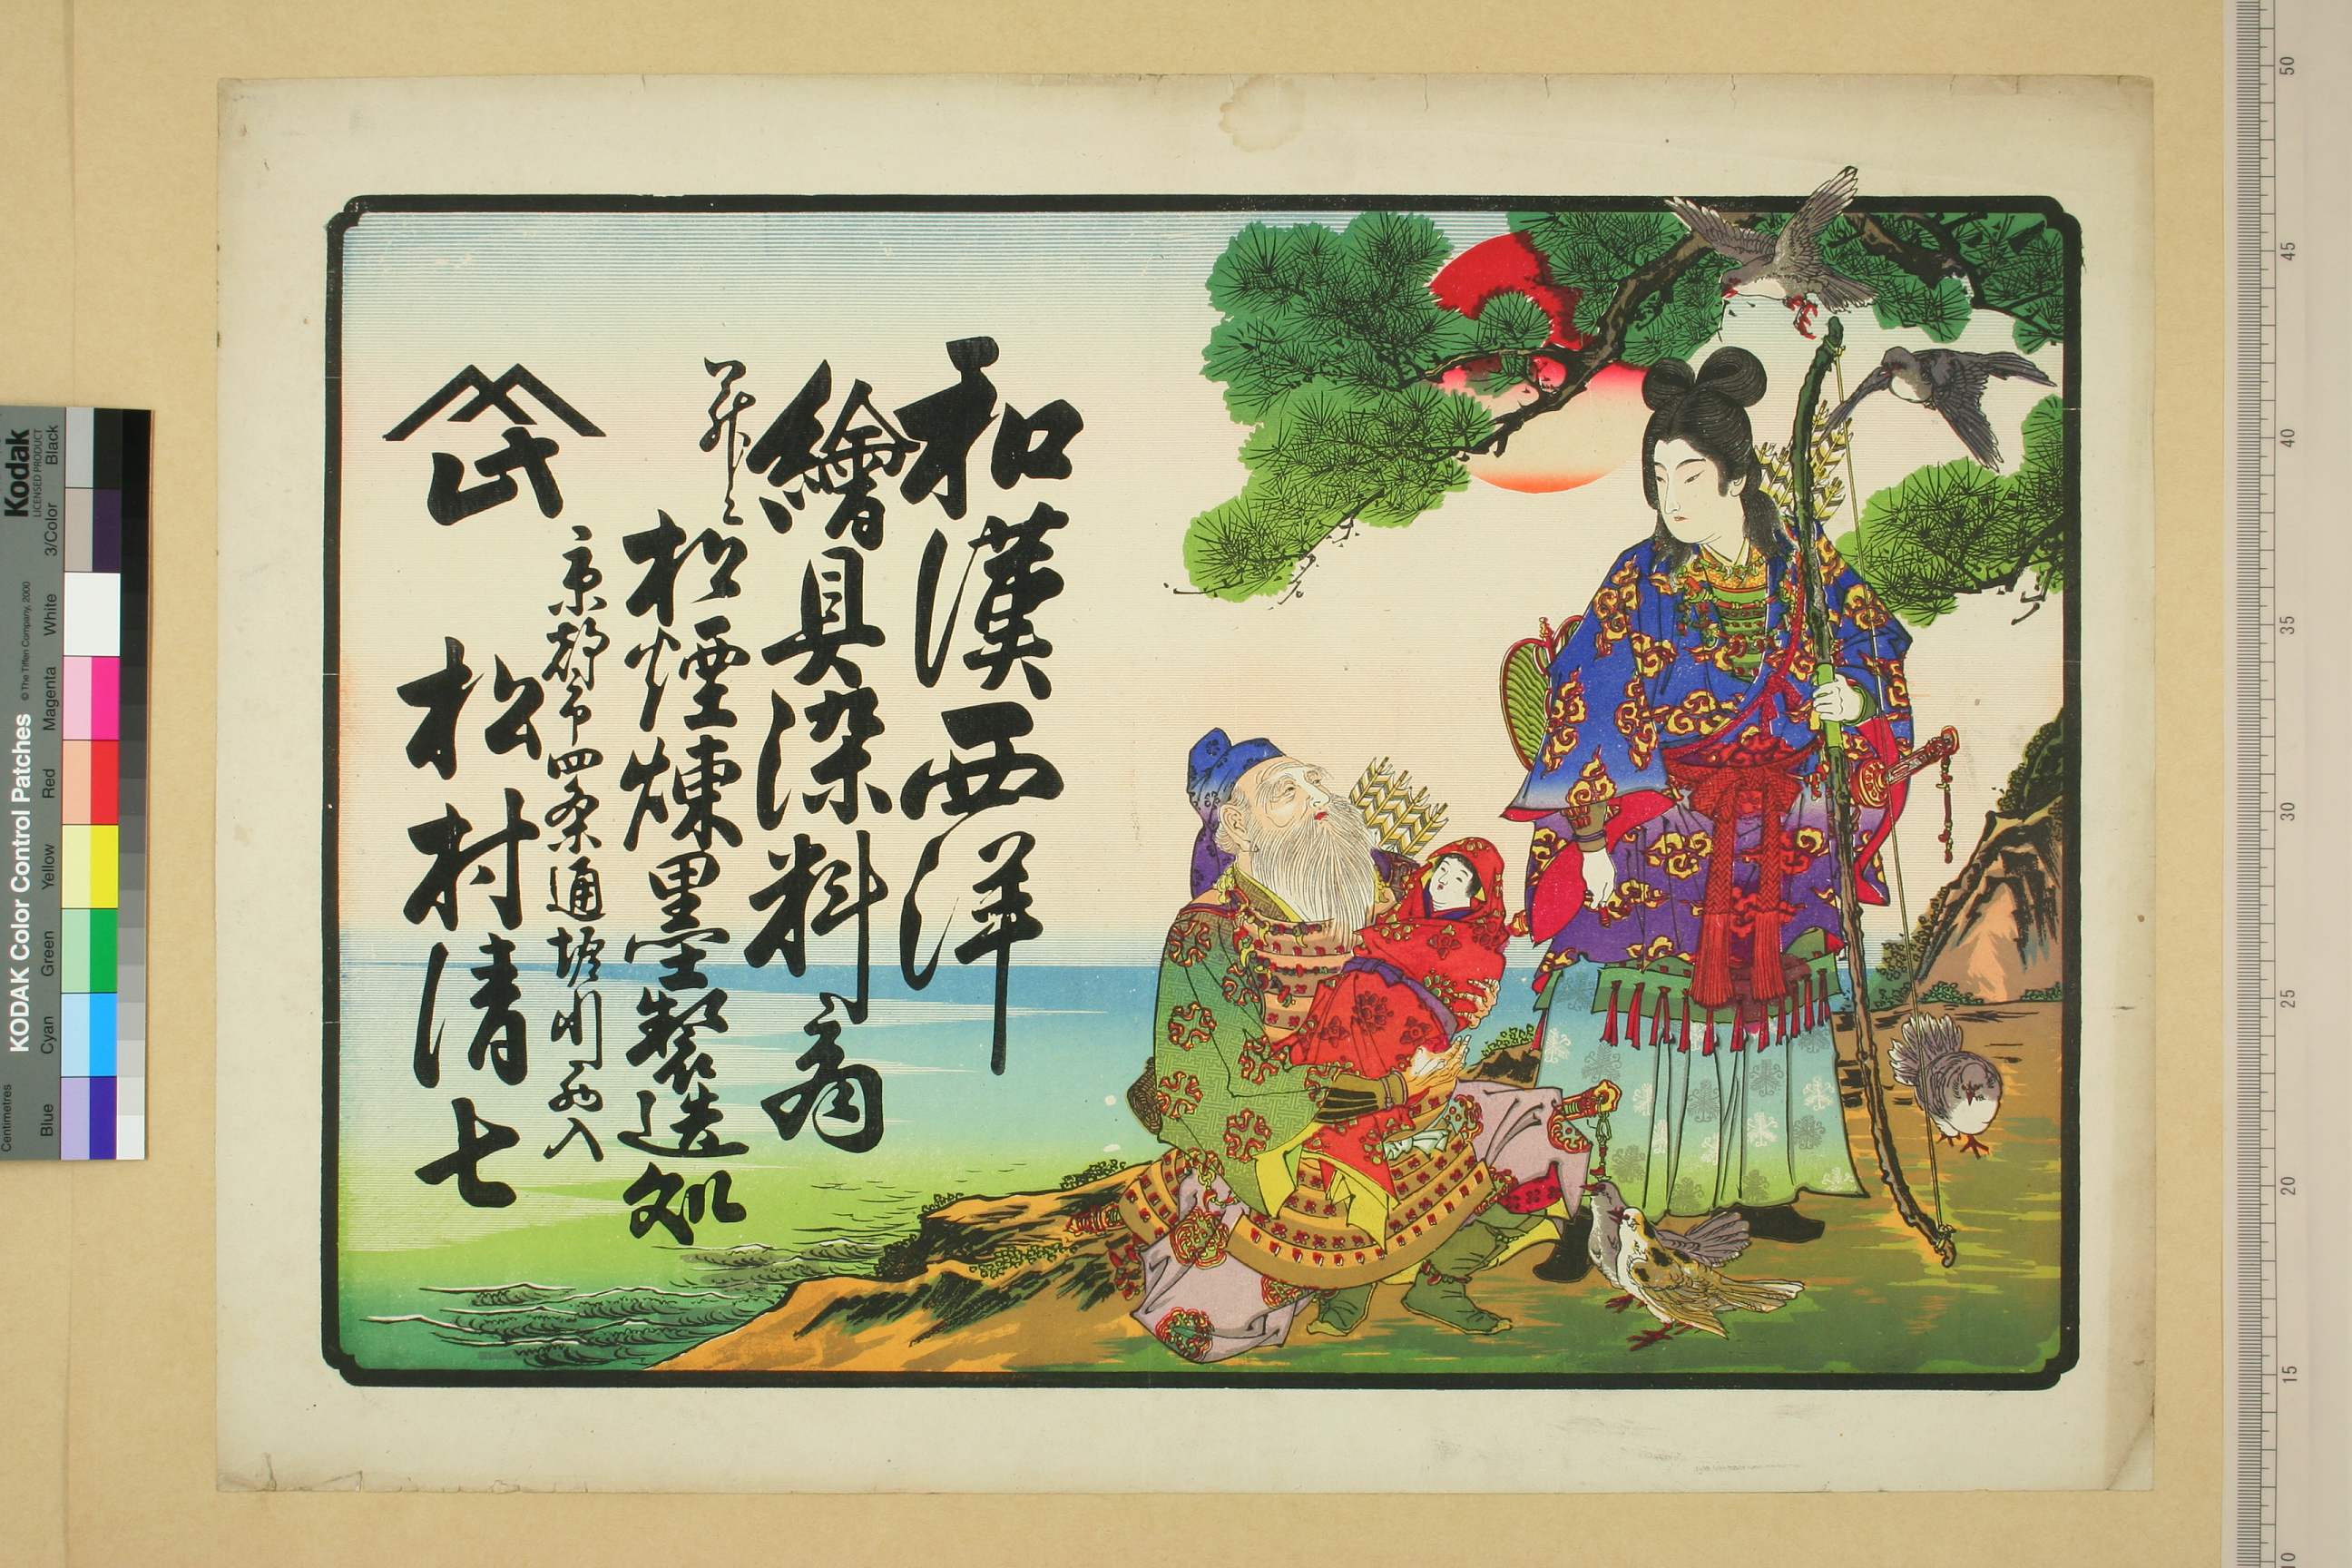 和漢西洋
繪具染料商
並ニ
松煙煉墨製造処
京都市四条通堀川西入
松村清七
Kodak
LICENSED PRODUCT
KODAK Color Control Patches
© The Tiffen Company, 2000
Centimetres
Blue
Cyan
Green
Yellow
Red
Magenta
White
3/Color
Black
50
45
40
35
30
25
20
15
10